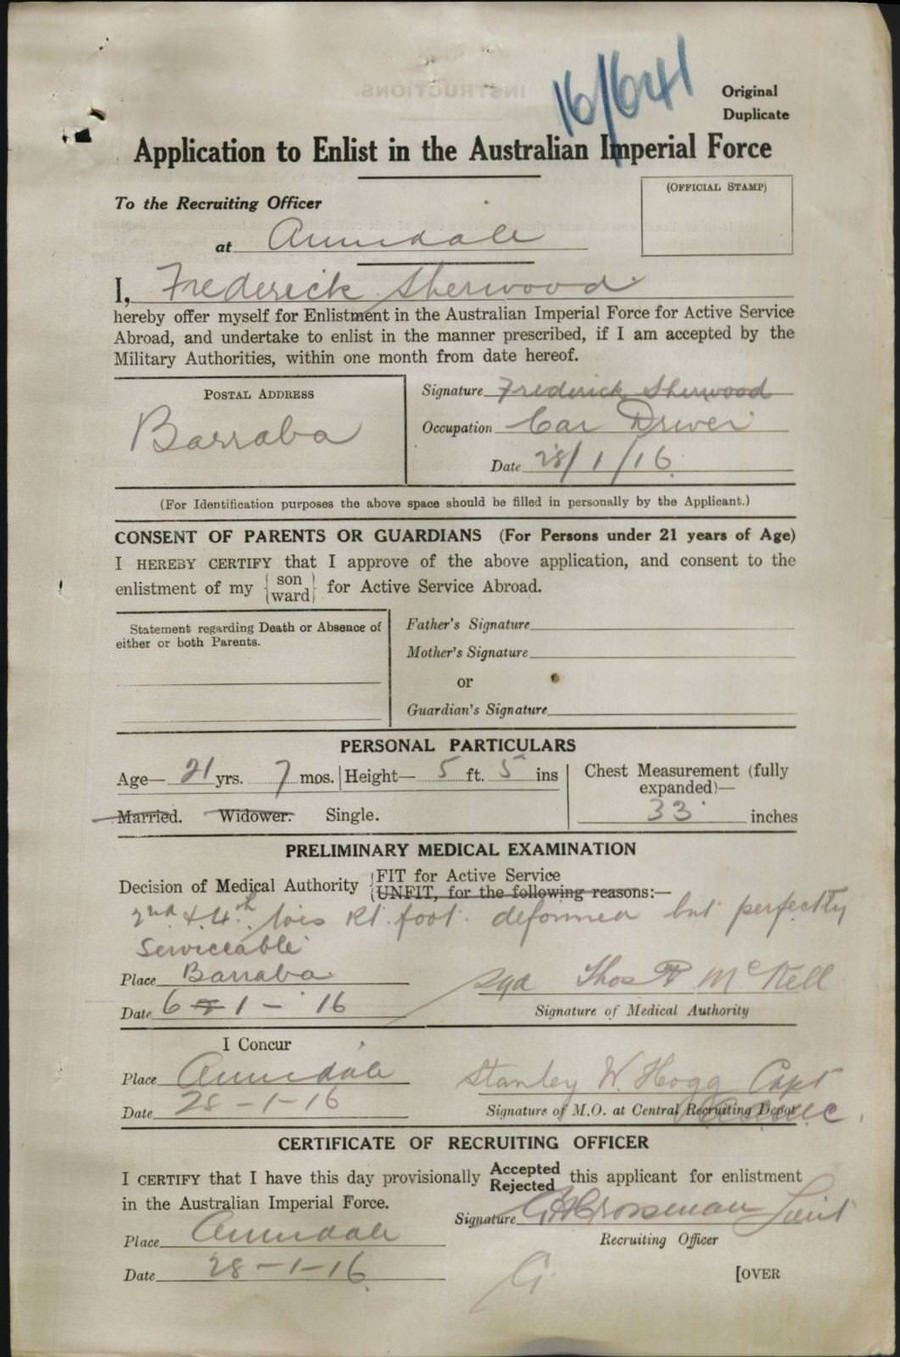 16/641
Original
Duplicate
Application to Enlist in the Australian Imperial Force
(OFFICIAL STAMP)
To the Recruiting Officer
at Annidale
I, Frederick Sherwood
hereby offer myself for Enlistment in the Australian Imperial Force for Active Service
Abroad, and undertake to enlist in the manner prescribed, if I am accepted by the
Military Authorities, within one month from date hereof.
POSTAL ADDRESS
Barraba
Signature Frederick Sherwood
Occupation Car Driver
Date 28/1/16
(For Identification purposes the above space should be filled in personally by the Applicant.)
CONSENT OF PARENTS OR GUARDIANS (For Persons under 21 years of Age)
I HEREBY CERTIFY that I approve of the above application, and consent to the
enlistment of my {son ward} for Active Service Abroad.
Statement regarding Death or Absence of
either or both Parents.
Father's Signature
Mother's Signature
or
Guardian's Signature
PERSONAL PARTICULARS
Age— 21 yrs. 7 mos. Height— 5 ft. 5 ins
Chest Measurement (fully
expanded)—
33 inches
Married. Widower. Single.
PRELIMINARY MEDICAL EXAMINATION
Decision of Medical Authority {FIT for Active Service
{UNFIT, for the following reasons:—
2nd & 4th tois Rt. foot. deformed but perfectly
Serviceable
Place Barraba
Date 6 - 1 - 16
sgd Thos P McKell
Signature of Medical Authority
I Concur
Place Annidale
Date 28-1-16
Stanley W. Hogg Capt
Signature of M.O. at Central Recruiting Depot
CERTIFICATE OF RECRUITING OFFICER
I CERTIFY that I have this day provisionally Accepted Rejected this applicant for enlistment
in the Australian Imperial Force.
Signature Grossman Lieut
Recruiting Officer
Place Annidale
Date 28-1-16
G.
[OVER